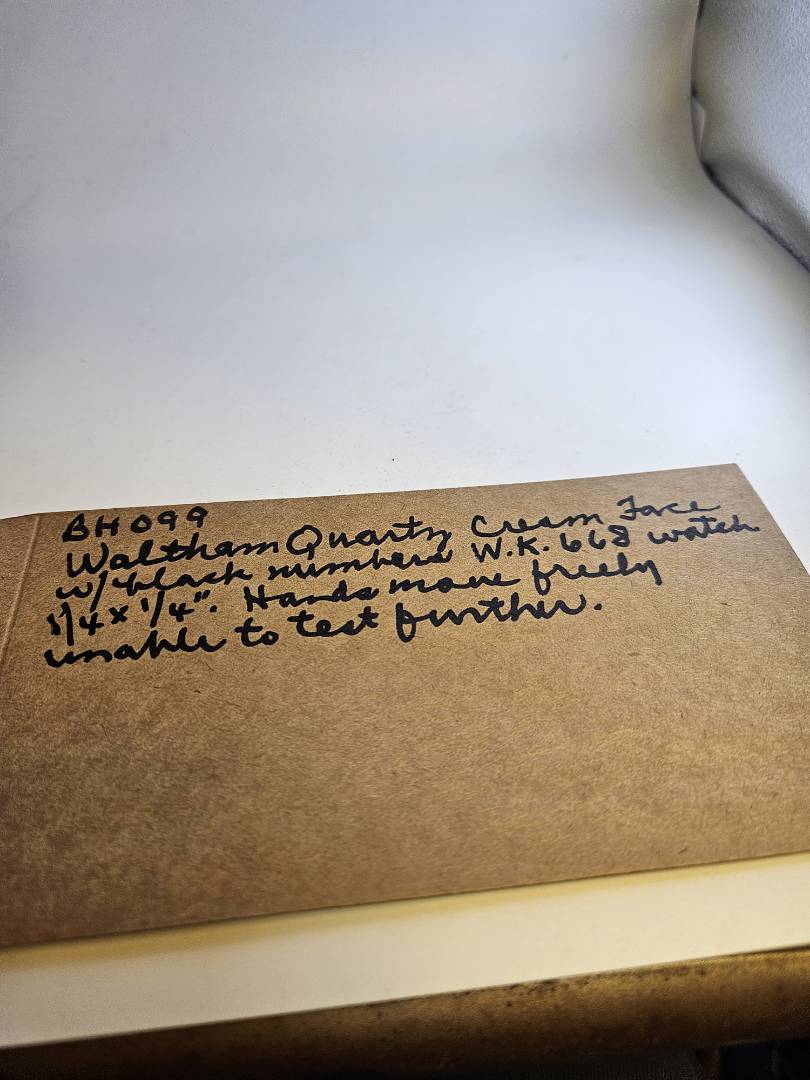 BH099
Waltham Quartz Cream Face
w/ black numbers W.K. 668 watch
1/4 x 1/4". Hands move freely
unable to test further.